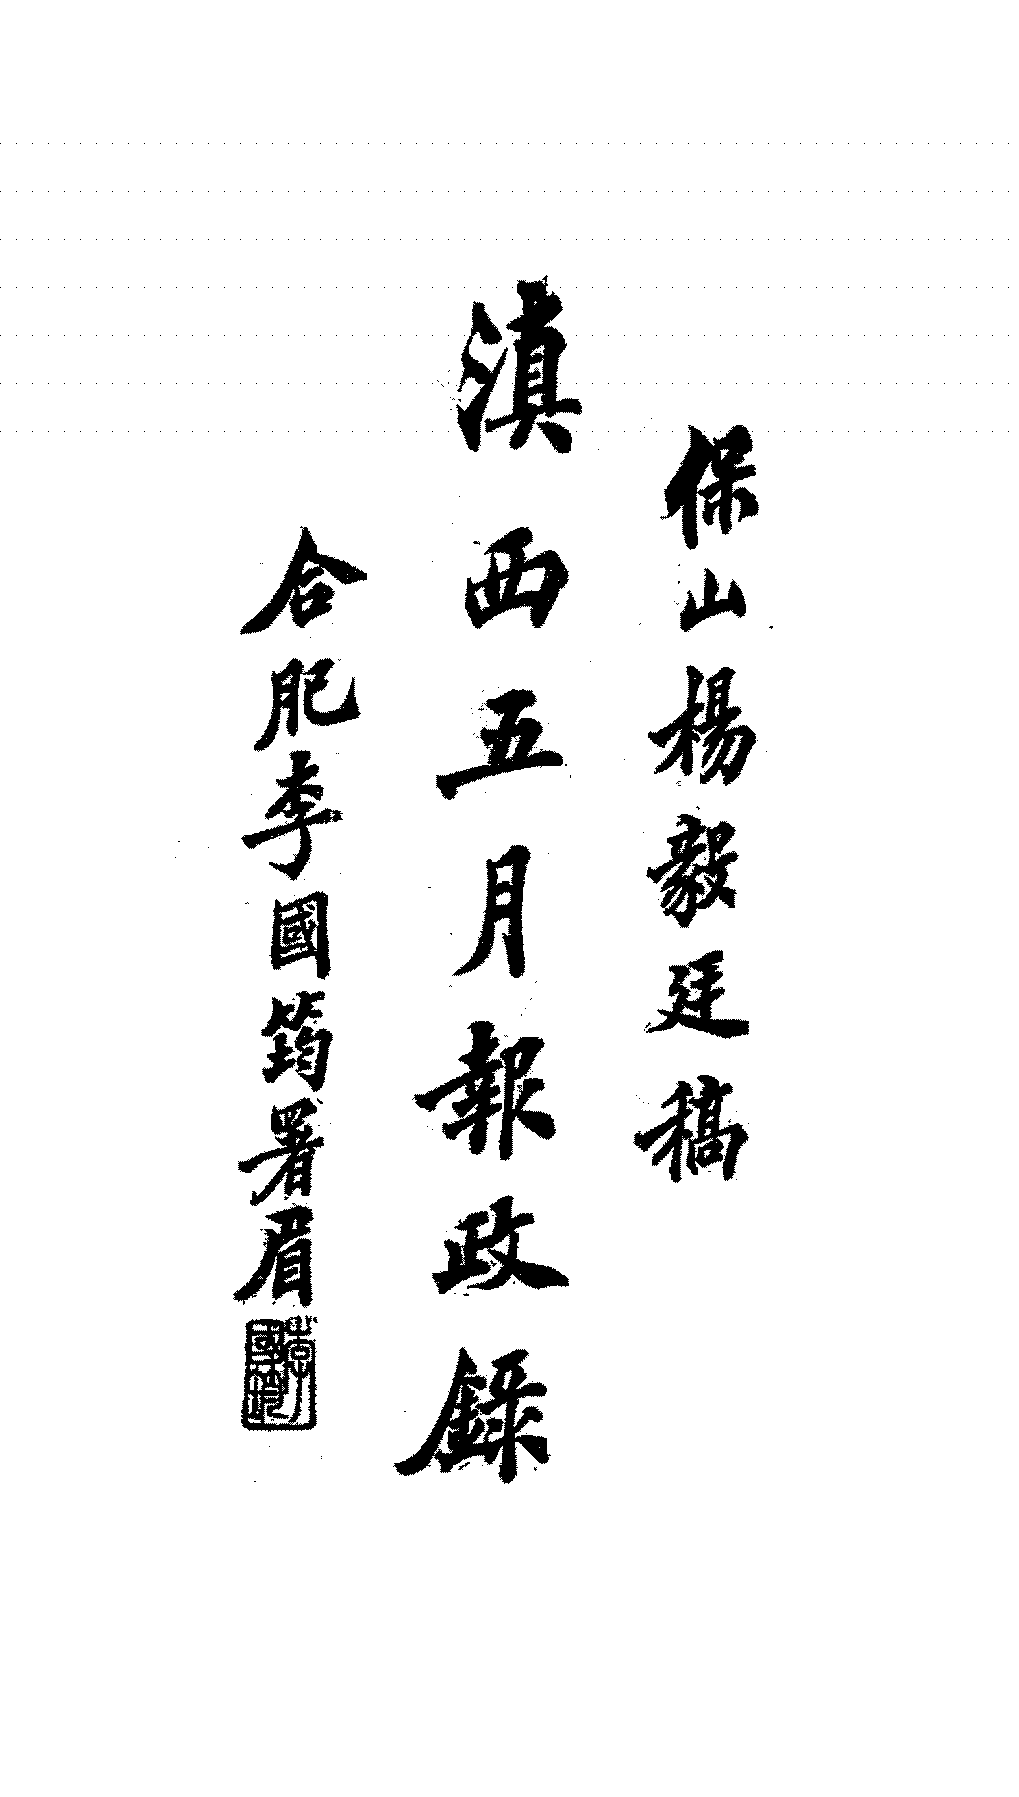 保山楊毅廷稿
滇西五月報政錄
合肥李國筠署眉